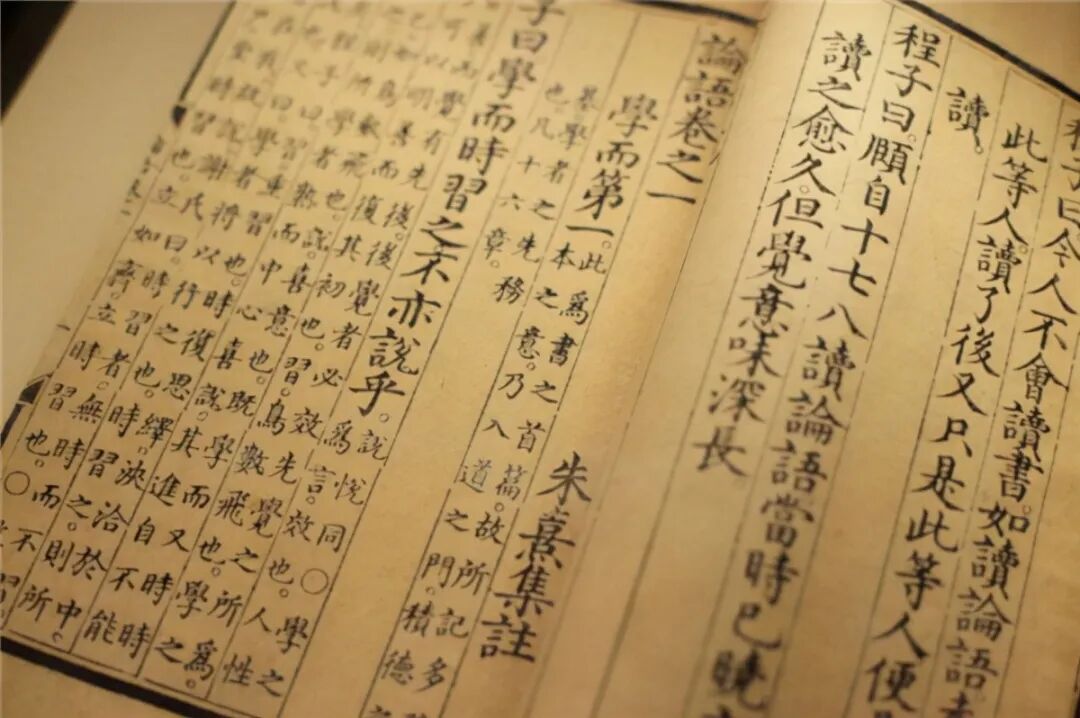 程子曰今人不會讀書。如讀論語。
此等人。讀了後又只是此等人便
讀。
程子曰。頤自十七八讀論語當時已曉
讀之愈久。但覺意味深長
論語卷之一
朱熹集註
學而第一。此爲書之首篇。故所記多
本之意。乃入道之門。積德
基。學者之先務
也凡十六章。
子曰學而時習之不亦說乎。說悅同○學之
爲言。效也。人性
善而覺有先後。後覺者必效先覺之所
可以明善而復其初也。習。鳥數飛也。學之
已。如鳥數飛也。說。喜意也。既學而又時
時習之則所學者熟。而中心喜說。其進自不能
矣。程子曰。習。重習也。時復思繹。浹洽於中。
說也。又曰。學者將以行之也。時習之。則所
在我。故說。謝氏曰。時習者。無時而不
時習也。立如齊。立時習也。○